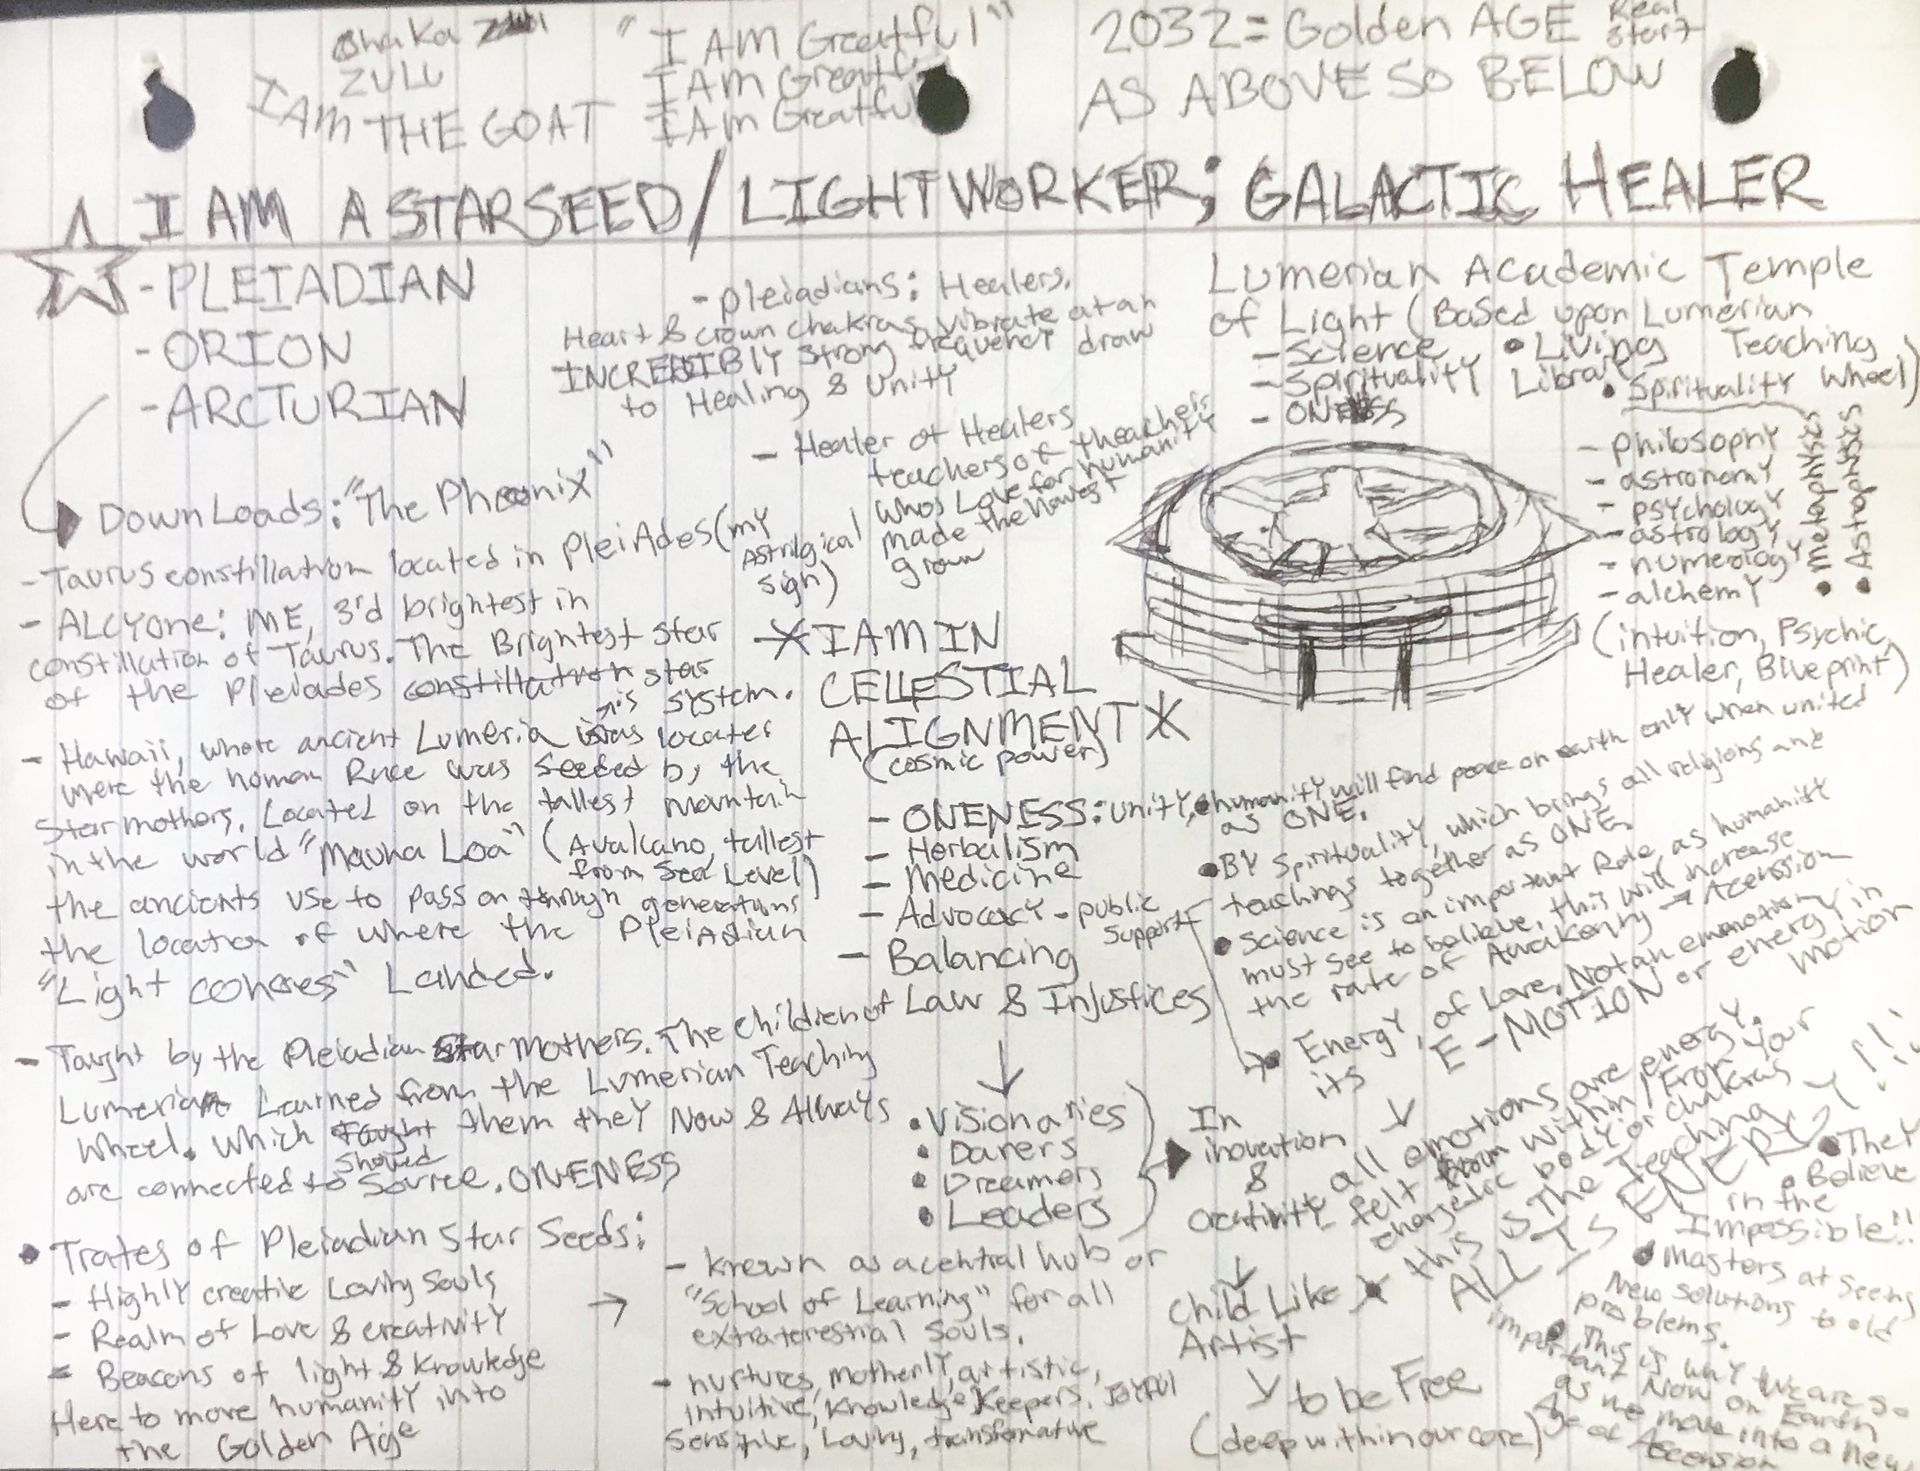 Shaka
ZULU
I AM THE GOAT
"I AM Greatful"
I AM Greatful
I AM Greatful
2032 = Golden AGE Real Start
AS ABOVE SO BELOW
I AM A STARSEED/LIGHTWORKER; GALACTIC HEALER
- PLEIADIAN
- ORION
- ARCTURIAN
- pleiadians: Healers,
Heart & crown chakras, vibrate at an
INCREDIBLY strong frequency draw
to Healing & Unity
- Healer of Healers
teachers of theachers
whos Love for humanity
made the
grow
Lumerian Academic Temple
of Light (Based upon Lumerian
- Science • Living Teaching
- Spirituality Library • Spirituality Wheel)
- ONENESS
- philosophy
- astronomy
- psychology
- astrology
- numerology
- alchemy
• metaphysics
(intuition, Psychic,
Healer, Blueprint)
DownLoads: "The Pheonix"
- Taurus constillation located in PleiAdes (my
Astrilgical
sign)
- ALCYone: ME, 3'd brightest in
constillation of Taurus. The Brightest star
of the Pleiades constillation star
is system.
- Hawaii, where ancient Lumeria was locater
were the homan Race was seeded by the
Star mothers. Located on the tallest mountain
in the world "Mauna Loa" (Avalcano, tallest
from Sea Level)
the ancients use to pass on through generations
the location of where the PleiAdian
"Light cohores" Landed.
- Taught by the Pleiadian Star Mothers. The Children of
Lumerian Learned from the Lumerian Teaching
Wheel. Which taught them they Now & Always
showed
are connected to Source. ONENESS
• Trates of Pleiadian Star Seeds:
- Highly creative Loving Souls
- Realm of Love & creativity
- Beacons of light & knowledge
Here to move humanity into
the Golden Age
* I AM IN
CELLESTIAL
ALIGNMENT *
(cosmic power)
- ONENESS: unity, humanity will find peace on earth only when united
as ONE.
- Herbalism
- Medicine
- Advocacy - public
support
- Balancing
Law & Injustices
• Visionaries
• Darers
• Dreamers
• Leaders
In
inovation
&
creativity
Child Like
Artist
to be Free
(deep within our core)
- known as a central hub or
"School of Learning" for all
extraterestrial souls.
- nurtures, motherly, artistic,
Intuitive, knowledge Keepers, JOYFUl
Sensitive, Loving, transformative
• BY Spirituality, which brings all religions and
teachings together as ONE.
• Science is an important Role, as humanist
must see to believe, this will increase
the rate of Awakening → Acension
• Energy, of Love. Not an emotion
its E-MOTION or energy in
motion
all emotions are energy.
felt from within/From your
energetic body or chakras
this is The Teaching
ALL IS ENERGY!!!
• They
• Believe
in the
Impossible!!
• Masters at seeing
New solutions to old
problems.
• This is why we are so
important Now on Earth
as we move into a new
Age of Ascension